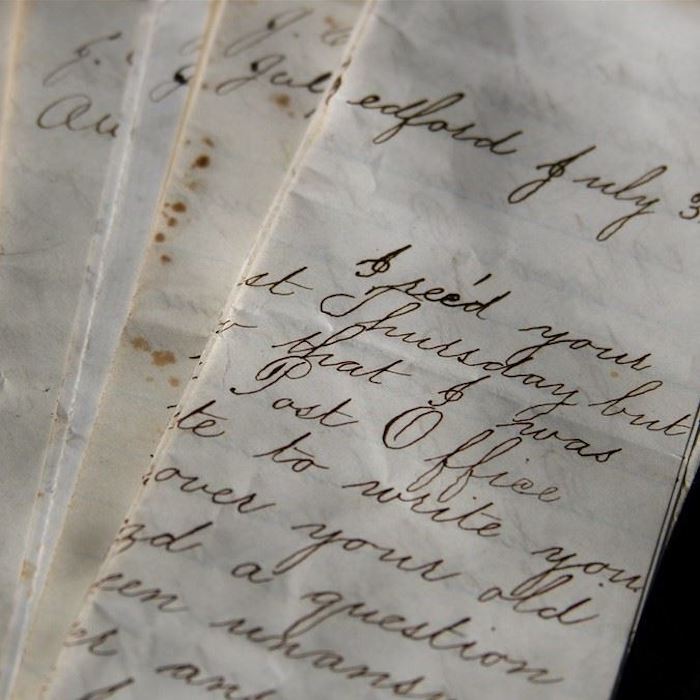 edford July 3
I rec'd your
st Thursday but
that I was
Post Office
te to write you
over your old
a question
een unansw
er ans